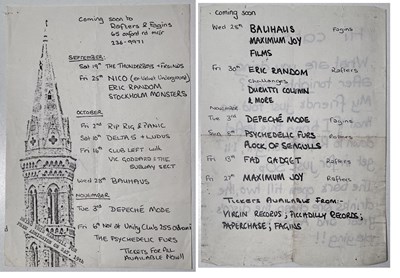 Coming soon to
Rafters & Fagins
65 oxford rd m/cr
236-9971
SEPTEMBER:
Sat 19th THE THUNDERBOYS + FELINES
Fri 25th NICO (ex Velvet Underground)
ERIC RANDOM
STOCKHOLM MONSTERS
OCTOBER
Fri 2nd RIP RIG & PANIC
Sat 10th DELTA 5 + LUDUS
Fri 16th CLUB LEFT with
VIC GODDARD & THE
SUBWAY SECT
Wed 28th BAUHAUS
NOVEMBER
Tue 3rd DEPECHÉ MODE
Fri 6th Nov at Unity Club
THE PSYCHEDELIC FURS
TICKETS FOR ALL
AVAILABLE NOW!!
Coming soon
Wed 28th BAUHAUS Fagins
MAXIMUM JOY
FILMS
Fri 30th ERIC RANDOM Rafters
Challenges
DURUTTI COLUMN
& MORE
November
Tue 3rd DEPECHÉ MODE Fagins
PSYCHEDELIC FURS
FLOCK OF SEAGULLS
Fri 13th FAD GADGET Rafters
Fri 27th MAXIMUM JOY Rafters
TICKETS AVAILABLE FROM:-
VIRGIN RECORDS; PICCADILLY RECORDS;
PAPERCHASE; FAGINS